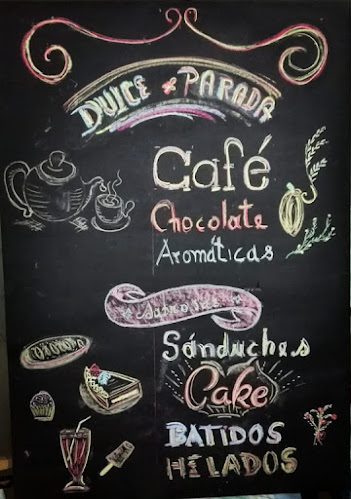 DULCE PARADA
Café
Chocolate
Aromáticas
Sánduches
Cake
BATIDOS
HELADOS